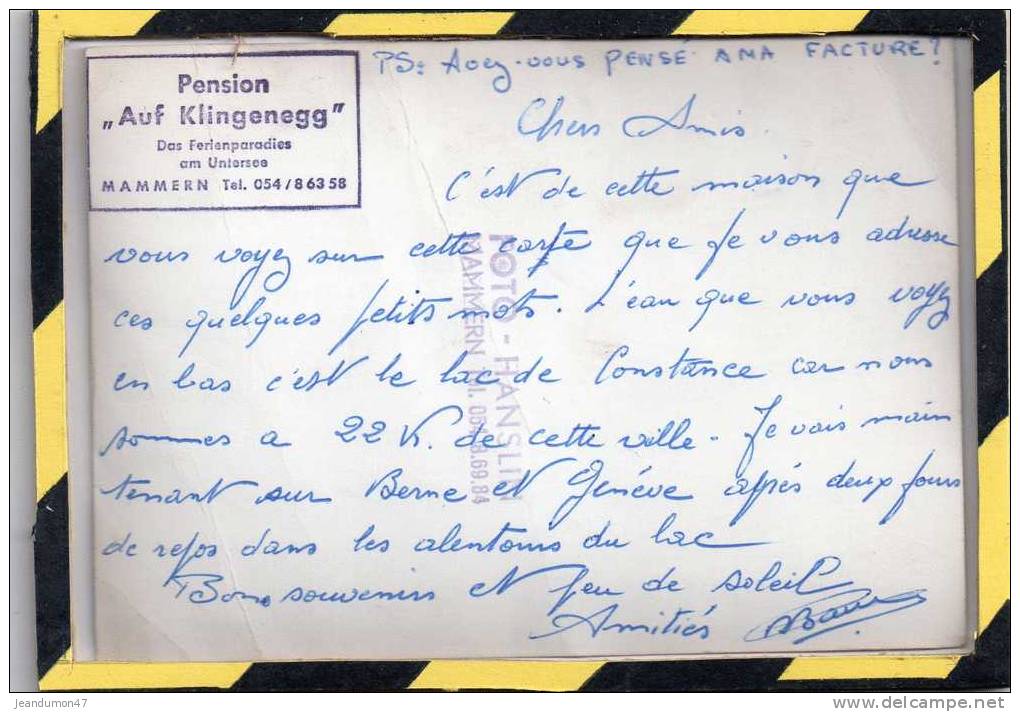 Pension
„Auf Klingenegg"
Das Ferienparadies
am Untersee
MAMMERN Tel. 054/86358
PS: Avez-vous PENSE A MA FACTURE?
Chers Amis
C'est de cette maison que
vous voyez sur cette carte que je vous adresse
ces quelques petits mots. L'eau que vous voyez
en bas c'est le lac de Constance car nous
sommes a 22 K. de cette ville. Je vais main
tenant sur Berne et Genève après deux jours
de repos dans les alentours du lac
Bons souvenirs et peu de soleil
Amitiés
FOTO - HANSLIN
MAMMERN Tel. 054/8.69.84
jeandumon47
delcampe.net